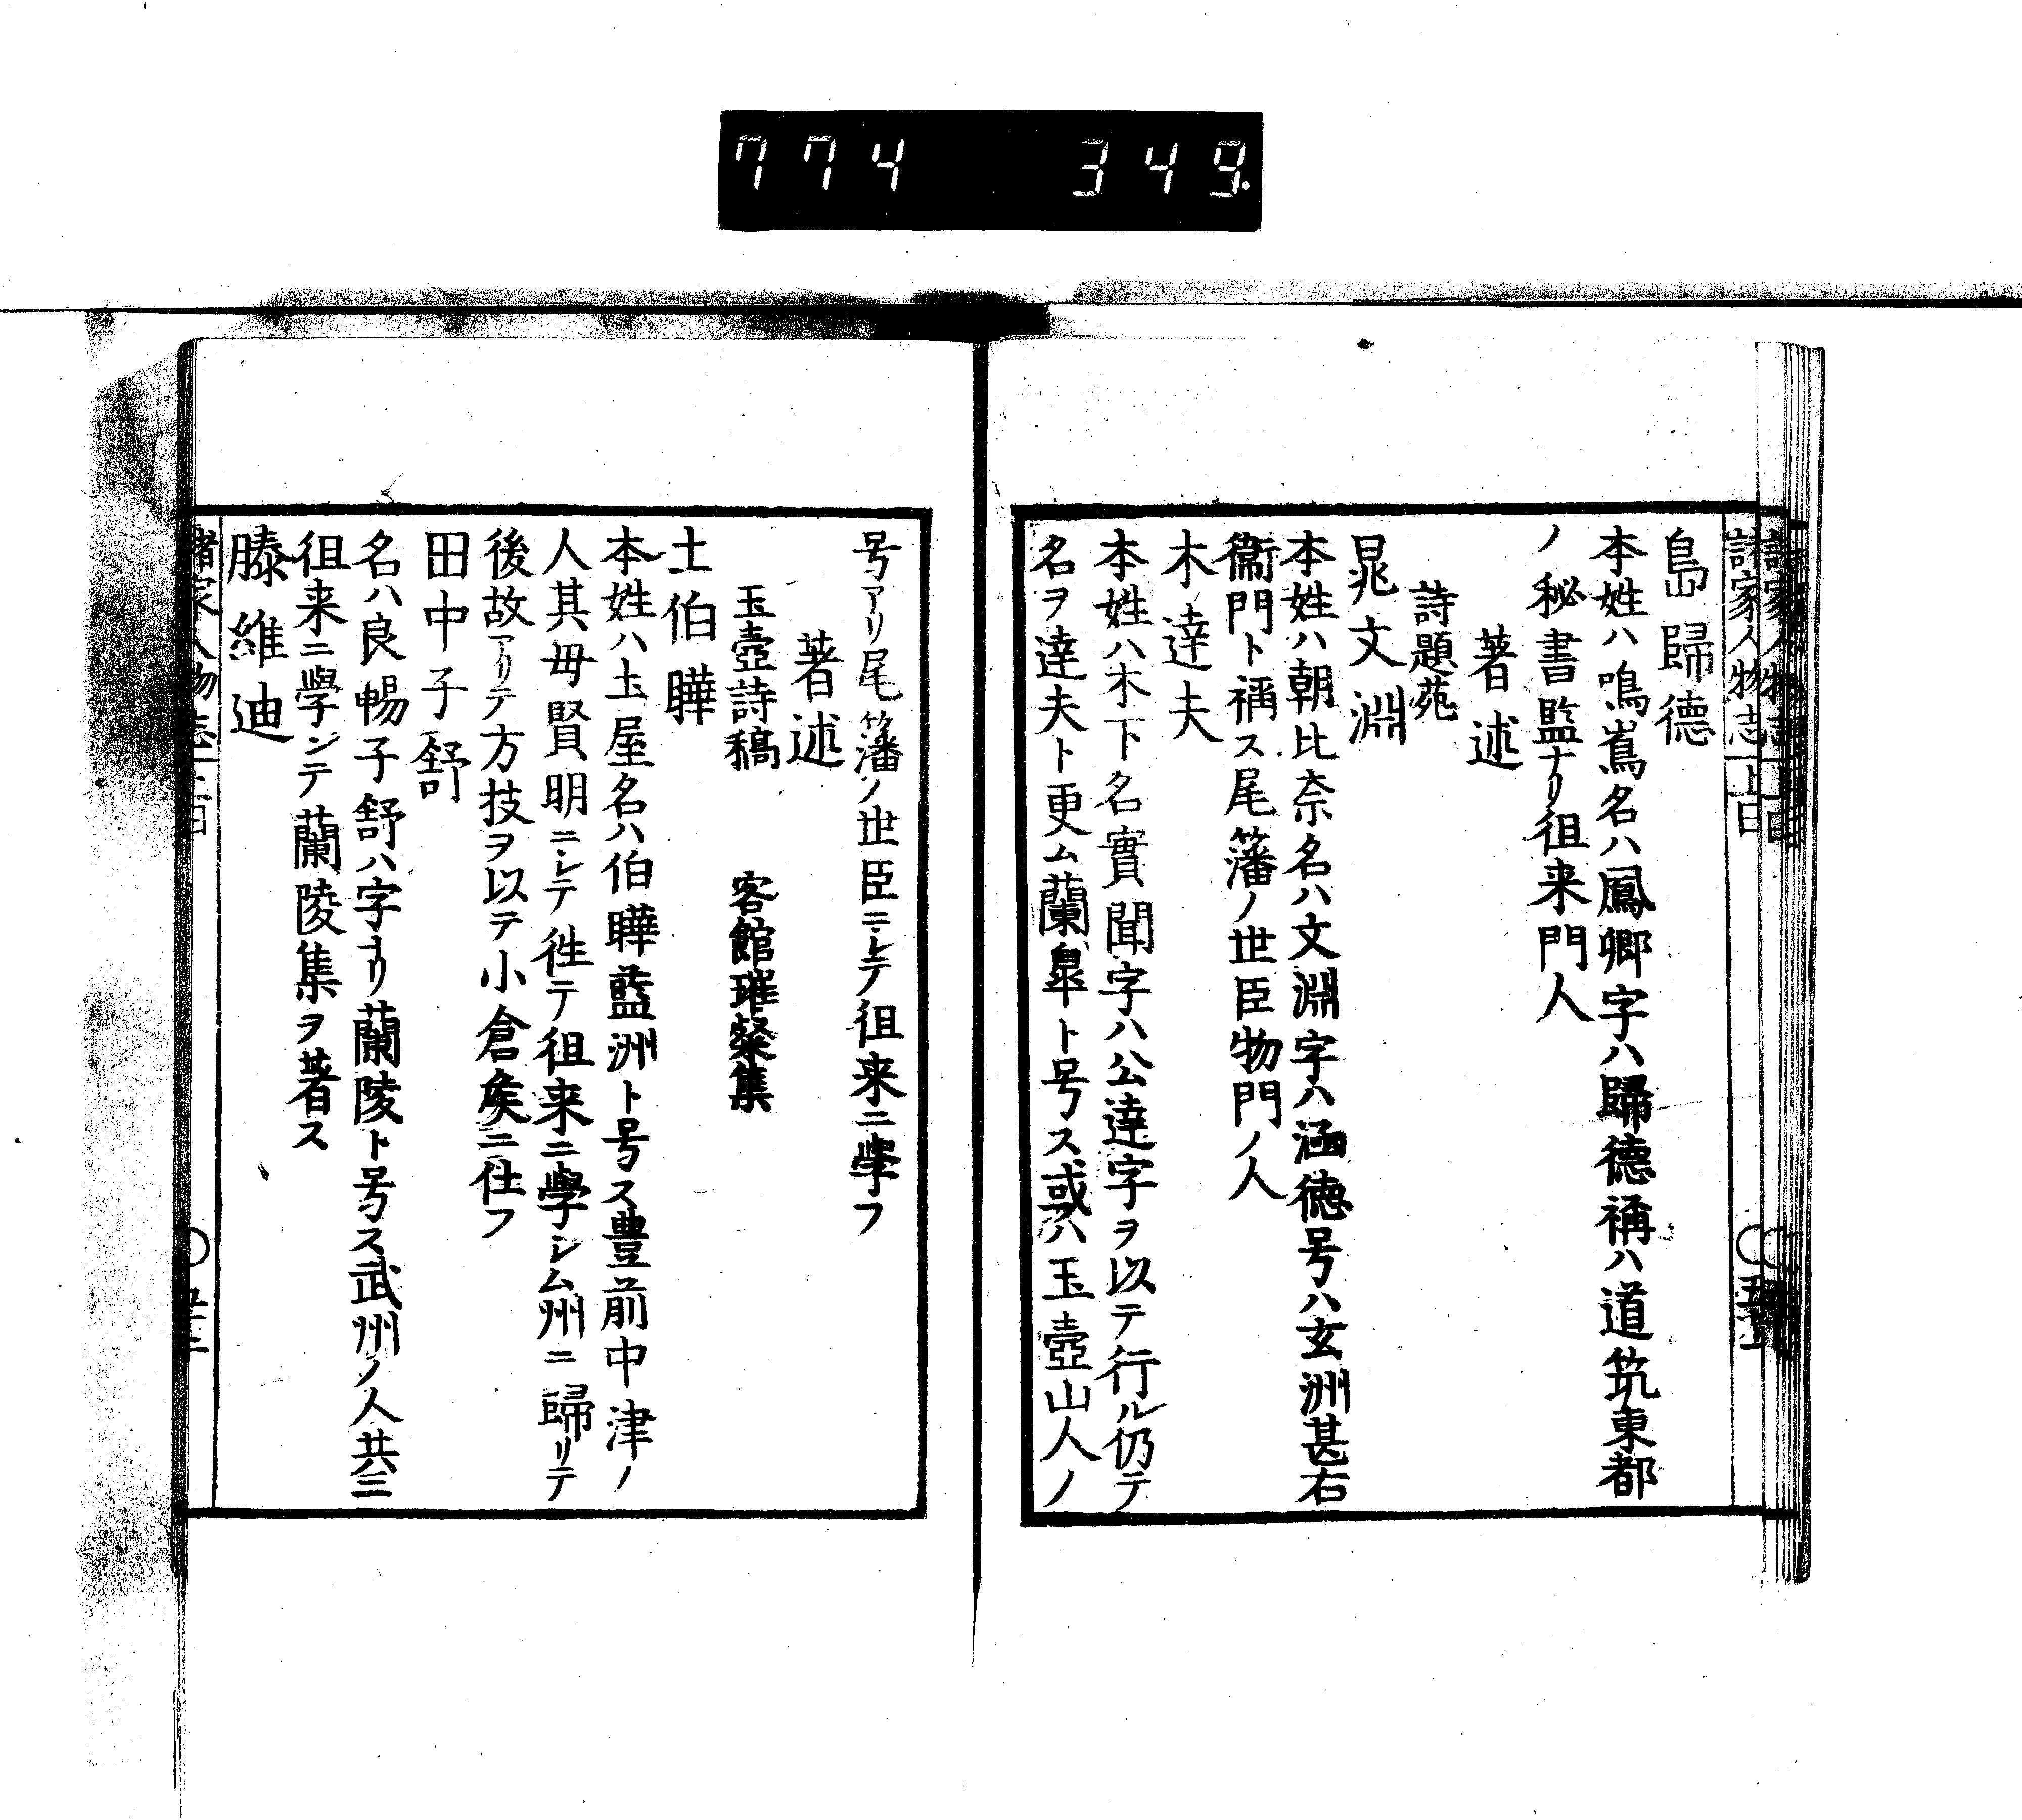 774 349.
島歸德
本姓ハ鳴嶌名ハ鳳卿字ハ歸德稱ハ道筑東都
ノ秘書監ナリ徂来門人
著述
詩題苑
晁文淵
本姓ハ朝比奈名ハ文淵字ハ涵德号ハ玄洲甚右
衞門ト稱ス尾藩ノ世臣物門ノ人
木達夫
本姓ハ木下名實聞字ハ公達字ヲ以テ行ル仍テ
名ヲ達夫ト更ム蘭皐ト号ス或ハ玉壺山人ノ
号アリ尾藩ノ世臣ニシテ徂来ニ學フ
著述
玉壺詩稿 客館璀粲集
土伯曄
本姓ハ土屋名ハ伯曄藍洲ト号ス豊前中津ノ
人其毋賢明ニシテ徃テ徂来ニ學シム州ニ歸リテ
後故アリテ方技ヲ以テ小倉矦ニ仕フ
田中子舒
名ハ良暢子舒ハ字ナリ蘭陵ト号ス武州ノ人共ニ
徂来ニ學ンテ蘭陵集ヲ著ス
滕維迪
諸家人物志上